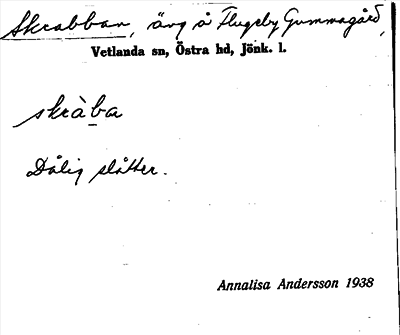 Skrabban, äng å Flugeby Gummagård,
Vetlanda sn, Östra hd, Jönk. l.
skràba
Dålig slåtter.
Annalisa Andersson 1938